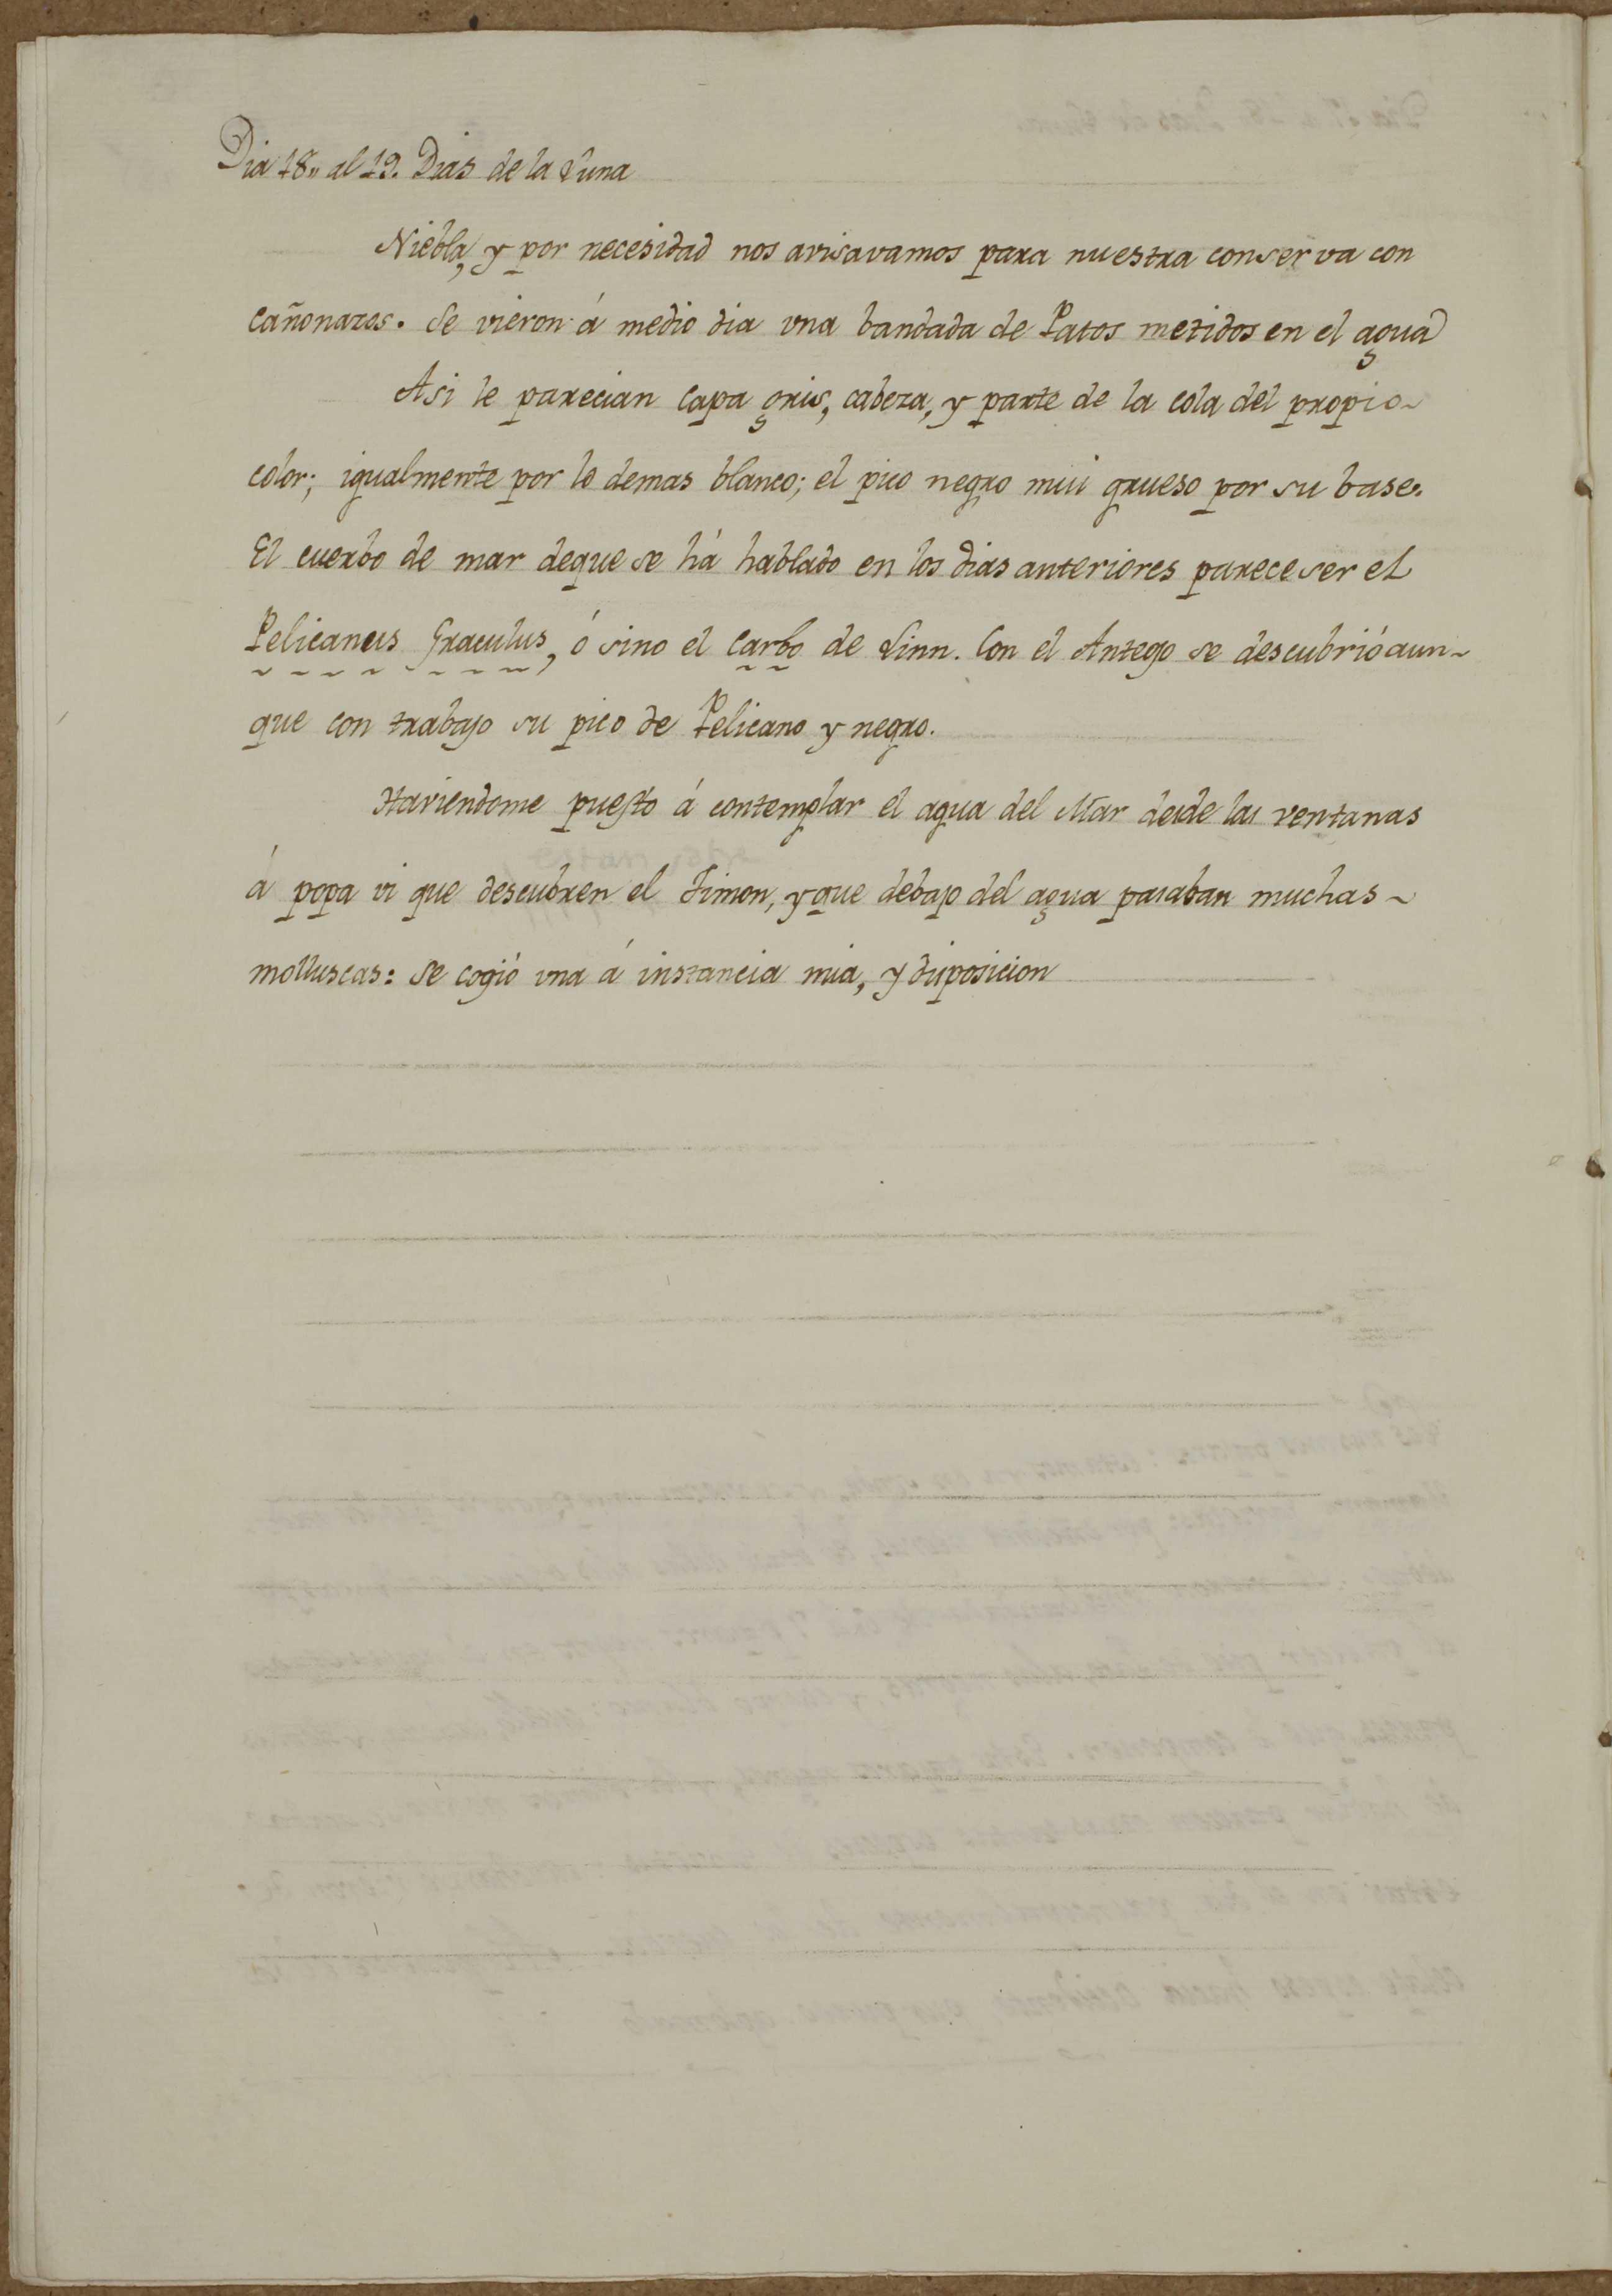 Dia 18,, al 19. Dias de la Luna
Niebla, y por necesidad nos avisavamos para nuestra conserva con
cañonazos. Se vieron á medio dia una bandada de Patos metidos en el agua
Asi le parecian capa gris, cabeza, y parte de la cola del propio~
color; igualmente por lo demas blanco; el pico negro mui grueso por su base.
El cuerbo de mar deque se há hablado en los dias anteriores parece ser el
Pelicanus Graculus, ó sino el Carbo de Linn. Con el Anteojo se descubrió aun~
que con trabajo su pico de Pelicano y negro.
Haviendome puesto á contemplar el agua del Mar desde las ventanas
á popa vi que descubren el Timon, y que debajo del agua pasaban muchas~
molluscas: se cogió una á instancia mia, y disposicion